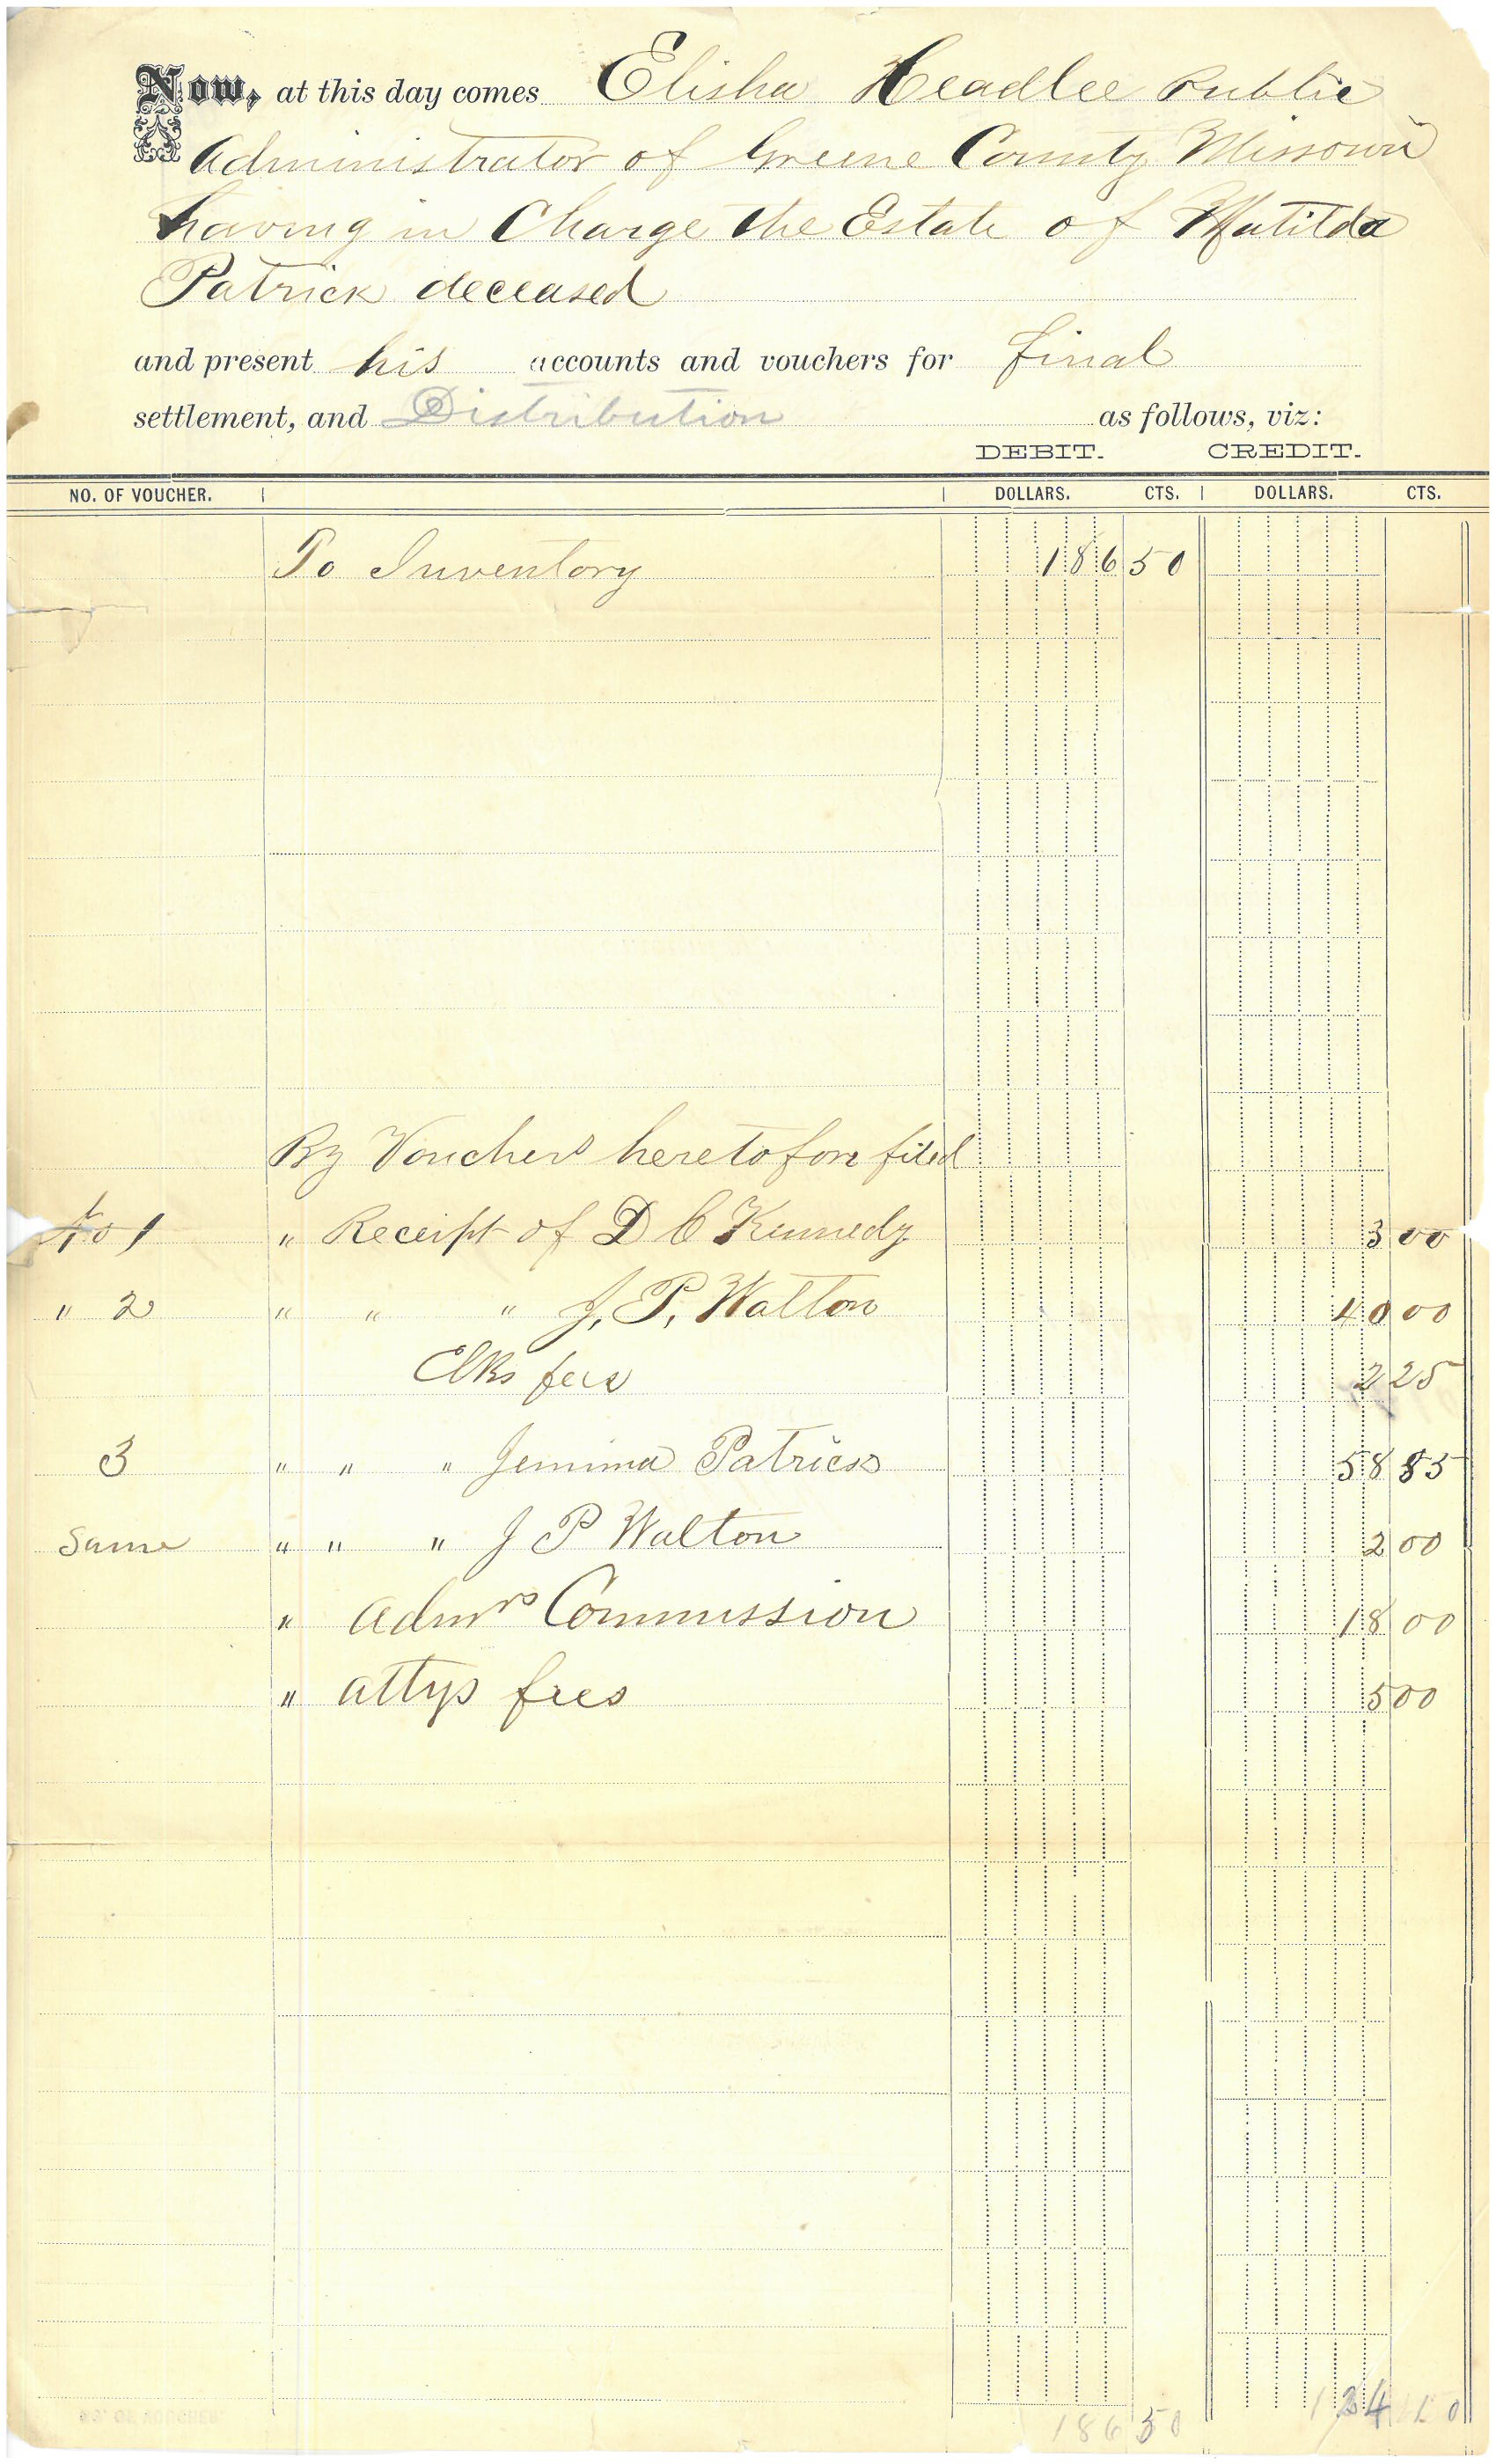 Now, at this day comes Elisha Headlee Public
Administrator of Greene County Missouri
having in Charge the Estate of Matilda
Patrick deceased
and present his accounts and vouchers for final
settlement, and Distribution as follows, viz:
DEBIT. CREDIT.
NO. OF VOUCHER. DOLLARS. CTS. DOLLARS. CTS.
To Inventory 186 50
By Vouchers heretofore filed
No 1 " Receipt of D C Kennedy 3 00
" 2 " " " J. P. Walton 40 00
Clks fees 2 25
3 " " " Jemima Patrick 58 85
Same " " " J P Walton 2 00
" Admrs Commission 18 00
" attys fees 5 00
186 50